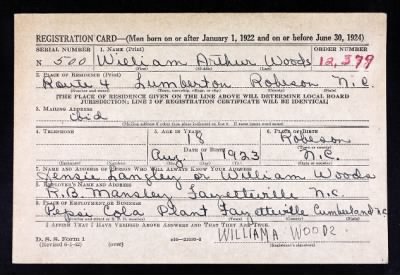 REGISTRATION CARD—(Men born on or after January 1, 1922 and on or before June 30, 1924)
SERIAL NUMBER 1. NAME (Print) ORDER NUMBER
N 500 William Arthur Woods 12,379
2. PLACE OF RESIDENCE (Print)
Route 4 Lumberton Robeson N.C.
[THE PLACE OF RESIDENCE GIVEN ON THE LINE ABOVE WILL DETERMINE LOCAL BOARD
JURISDICTION; LINE 2 OF REGISTRATION CERTIFICATE WILL BE IDENTICAL]
3. MAILING ADDRESS
Ibid
[Mailing address if other than place indicated on line 2. If same insert word same]
4. TELEPHONE 5. AGE IN YEARS 6. PLACE OF BIRTH
18 Robeson
DATE OF BIRTH
Aug 1 1923 N.C.
7. NAME AND ADDRESS OF PERSON WHO WILL ALWAYS KNOW YOUR ADDRESS
Langley or William Woods
8. EMPLOYER'S NAME AND ADDRESS
R.B. Fayetteville N.C.
9. PLACE OF EMPLOYMENT OR BUSINESS
Pepsi Cola Plant Fayetteville Cumberland N.C.
I AFFIRM THAT I HAVE VERIFIED ABOVE ANSWERS AND THAT THEY ARE TRUE.
D. S. S. Form 1
WILLIAM A WOODS